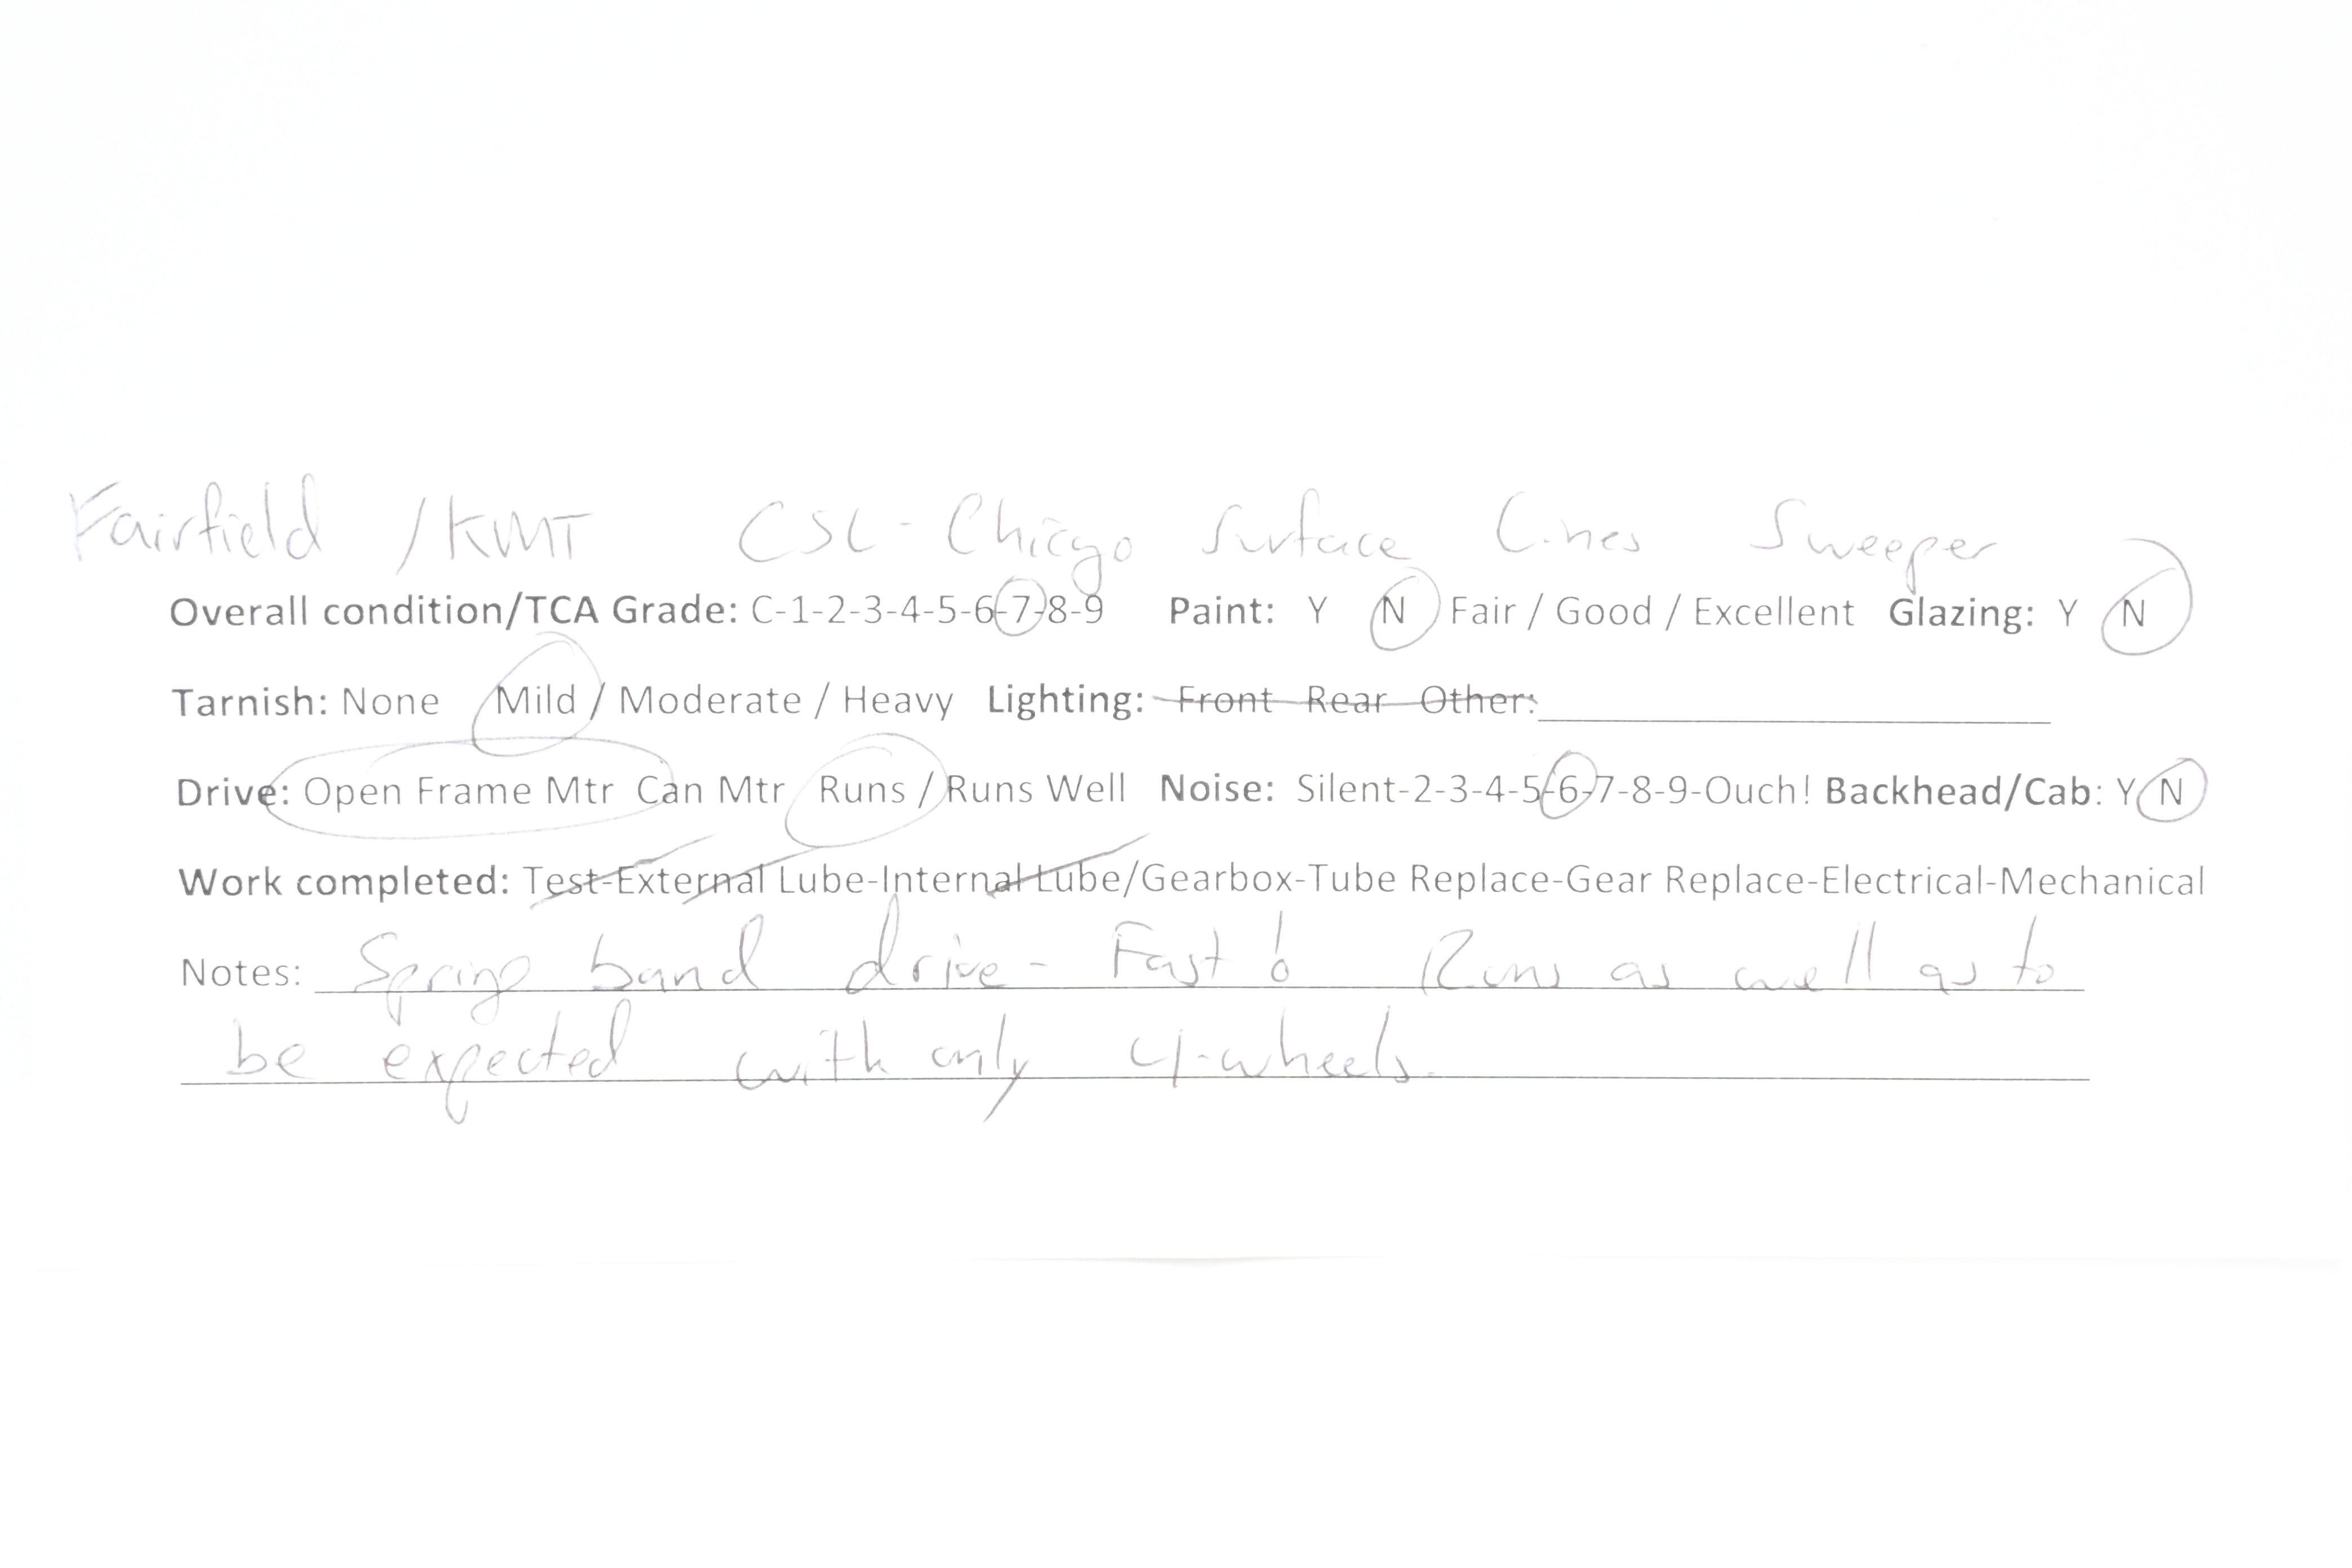 Fairfield /KMT CSL - Chicgo Surface Lines Sweeper
Overall condition/TCA Grade: C-1-2-3-4-5-6-7-8-9 Paint: Y N Fair / Good / Excellent Glazing: Y N
Tarnish: None Mild / Moderate / Heavy Lighting: Front Rear Other:
Drive: Open Frame Mtr Can Mtr Runs / Runs Well Noise: Silent-2-3-4-5-6-7-8-9-Ouch! Backhead/Cab: Y N
Work completed: Test-External Lube-Internal Lube/Gearbox-Tube Replace-Gear Replace-Electrical-Mechanical
Notes: Spring band drive - Fast Runs as well as to
be expected with only 4-wheels.